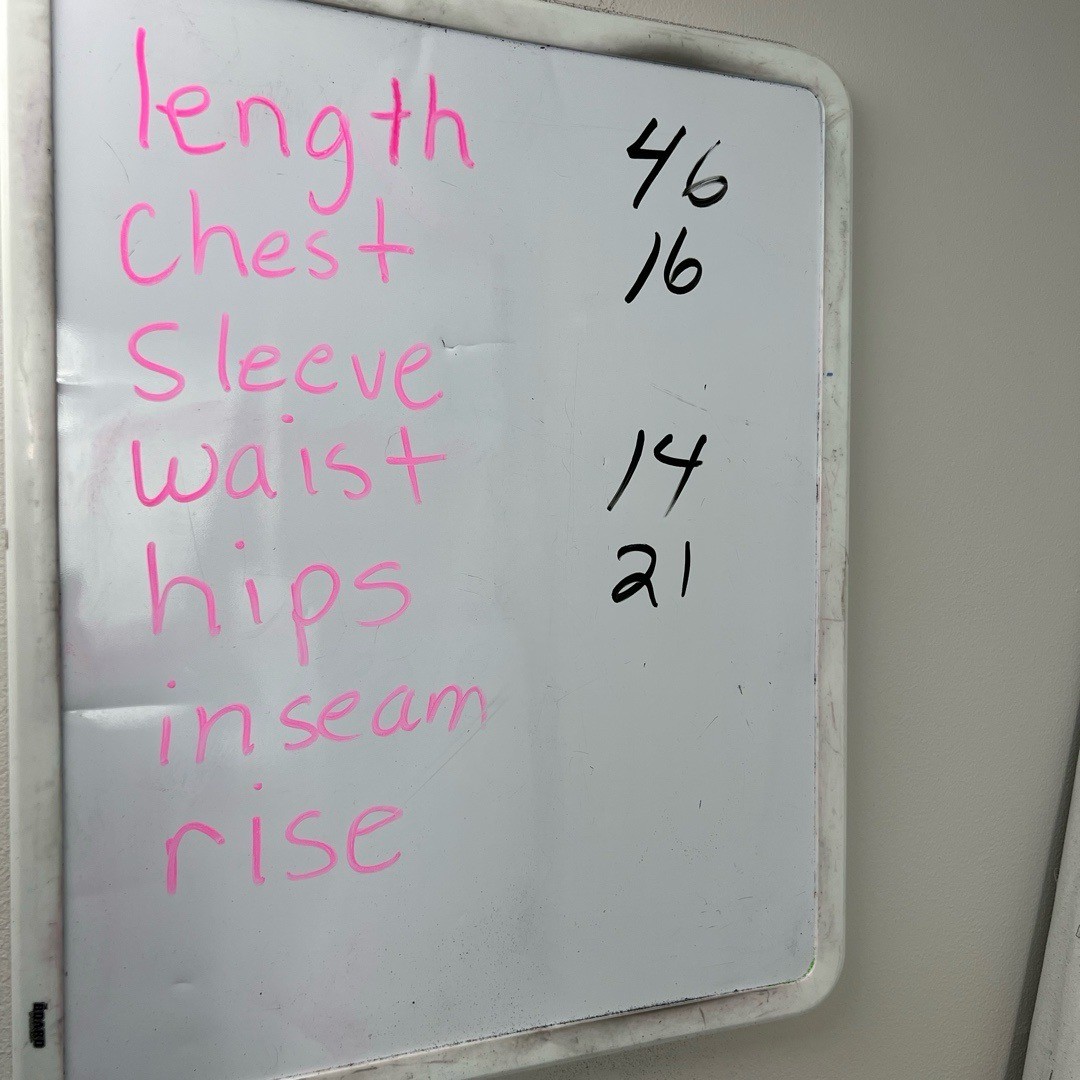 length 46
Chest 16
Sleeve
waist 14
hips 21
inseam
rise
BOARD